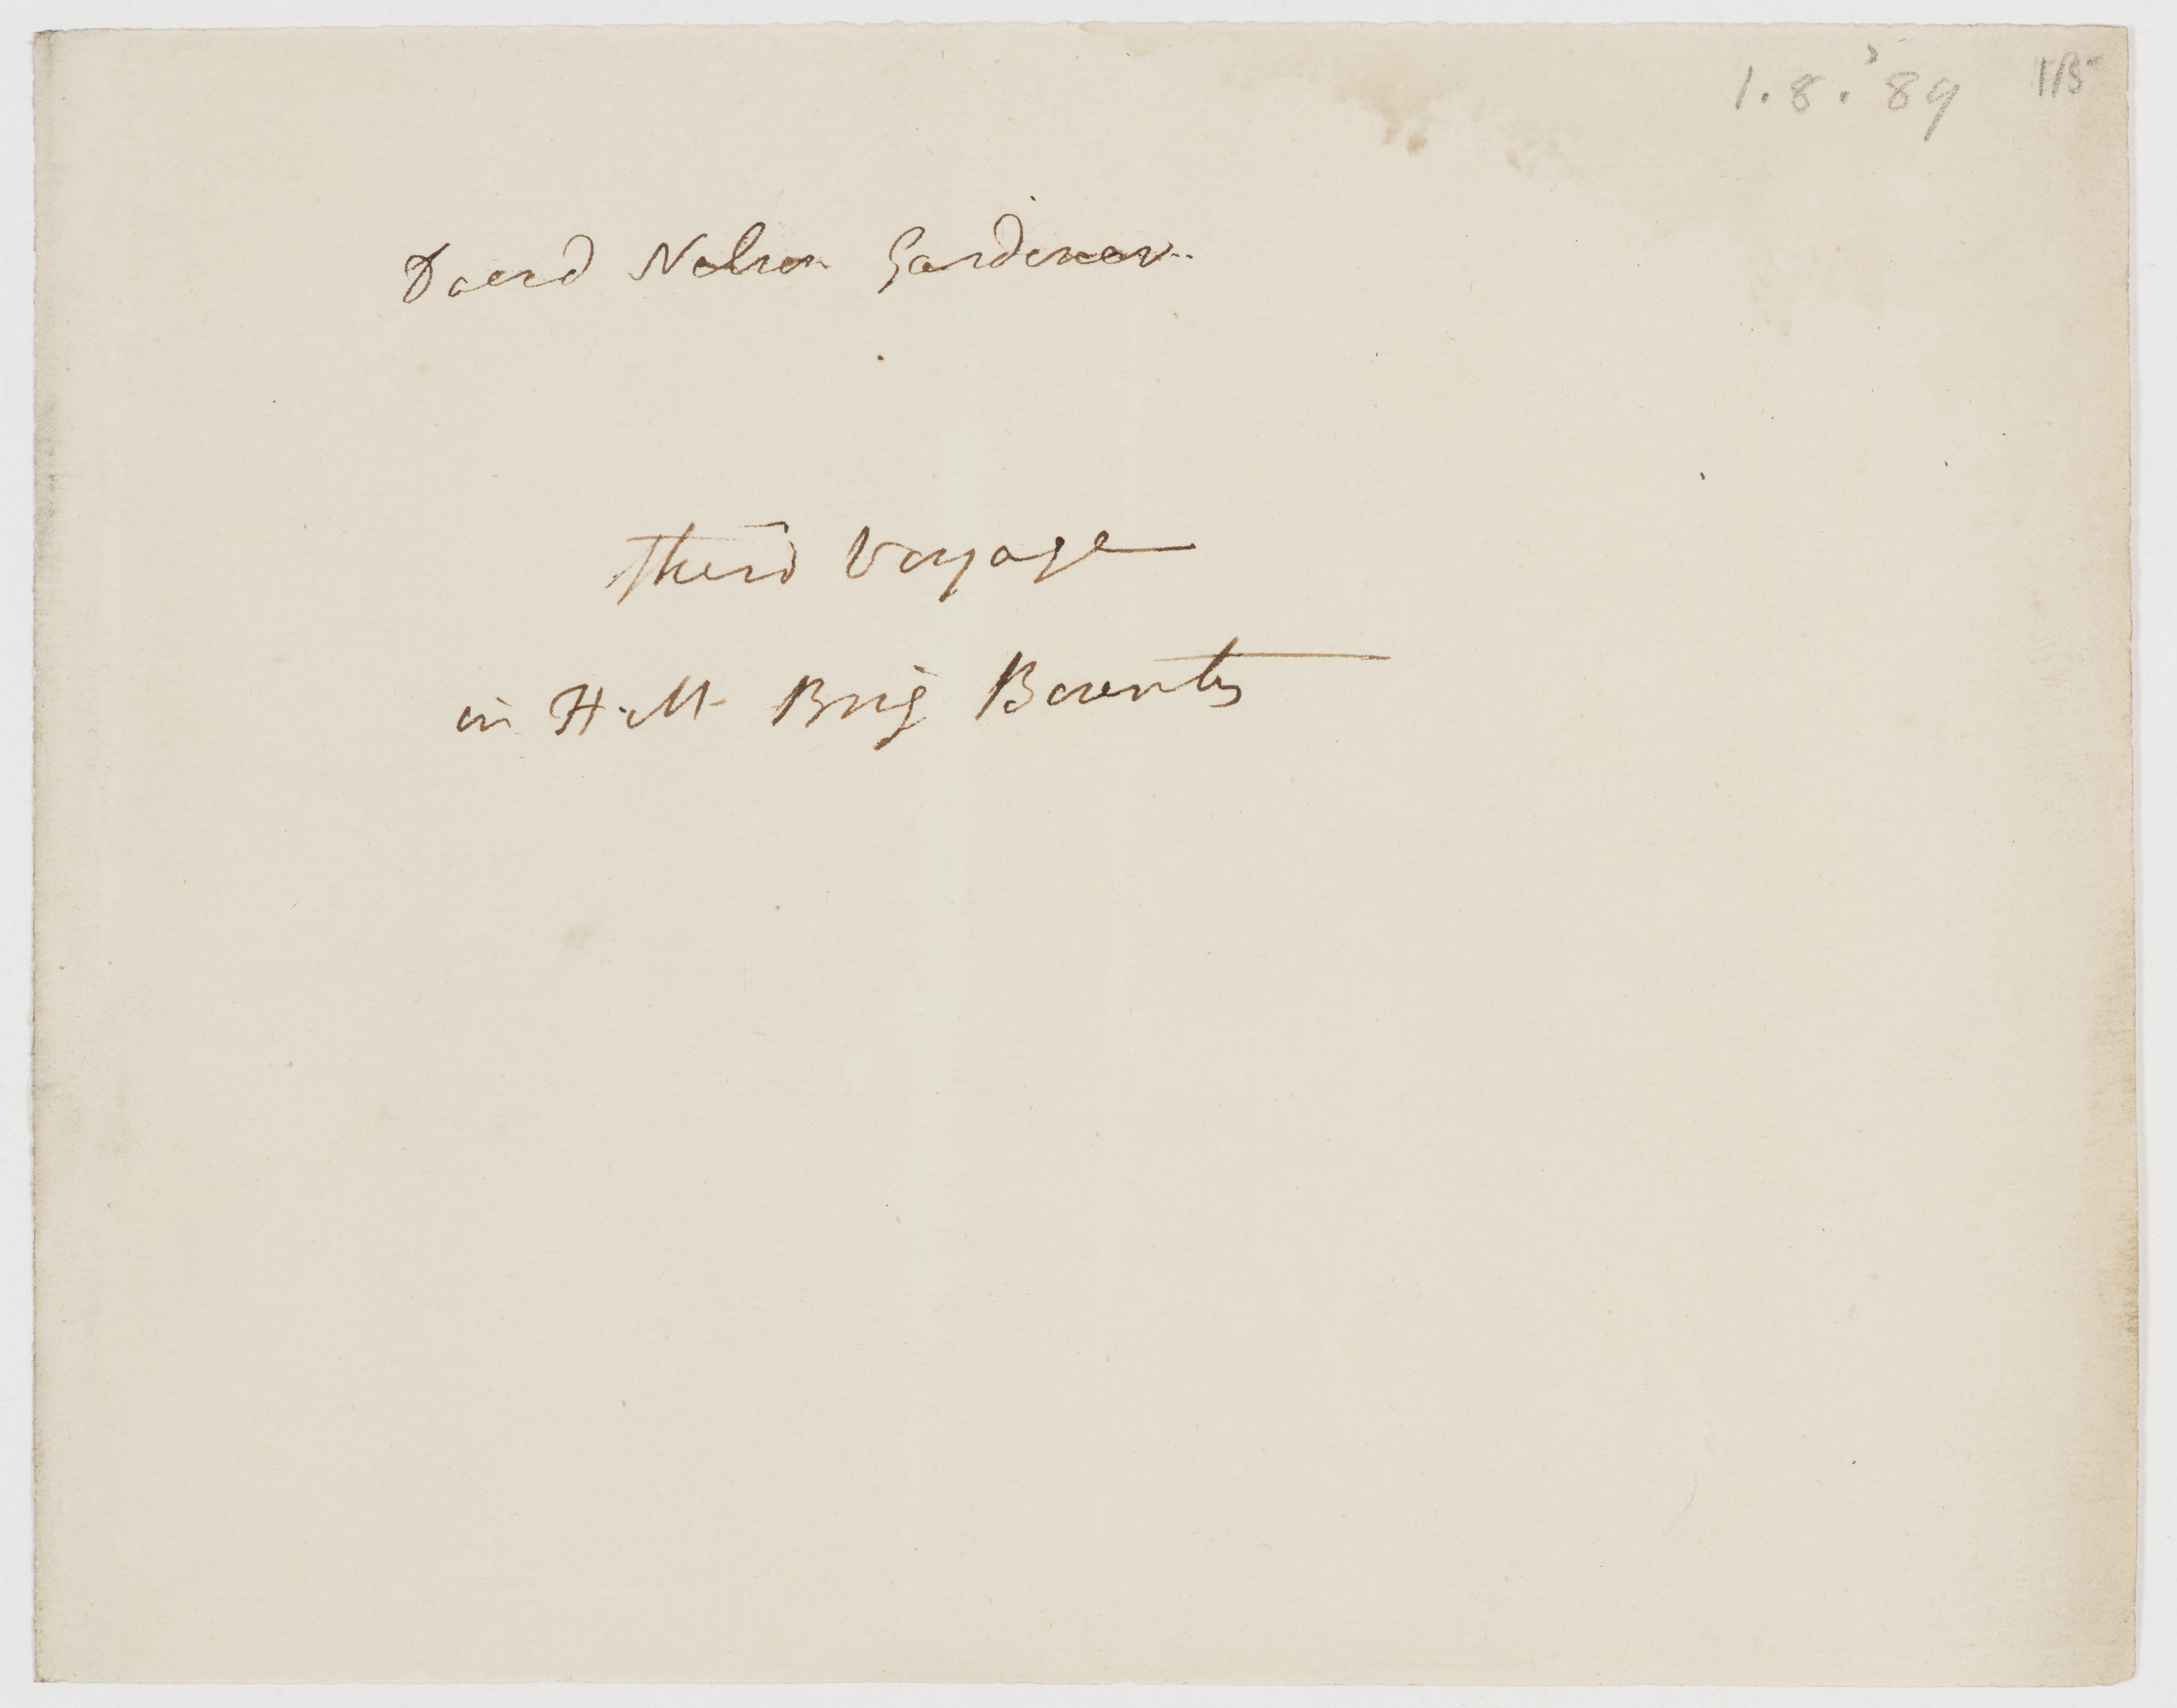 1.8.'89
David Nelson Gardener.
third Voyage
in H. M. Brig Bounty